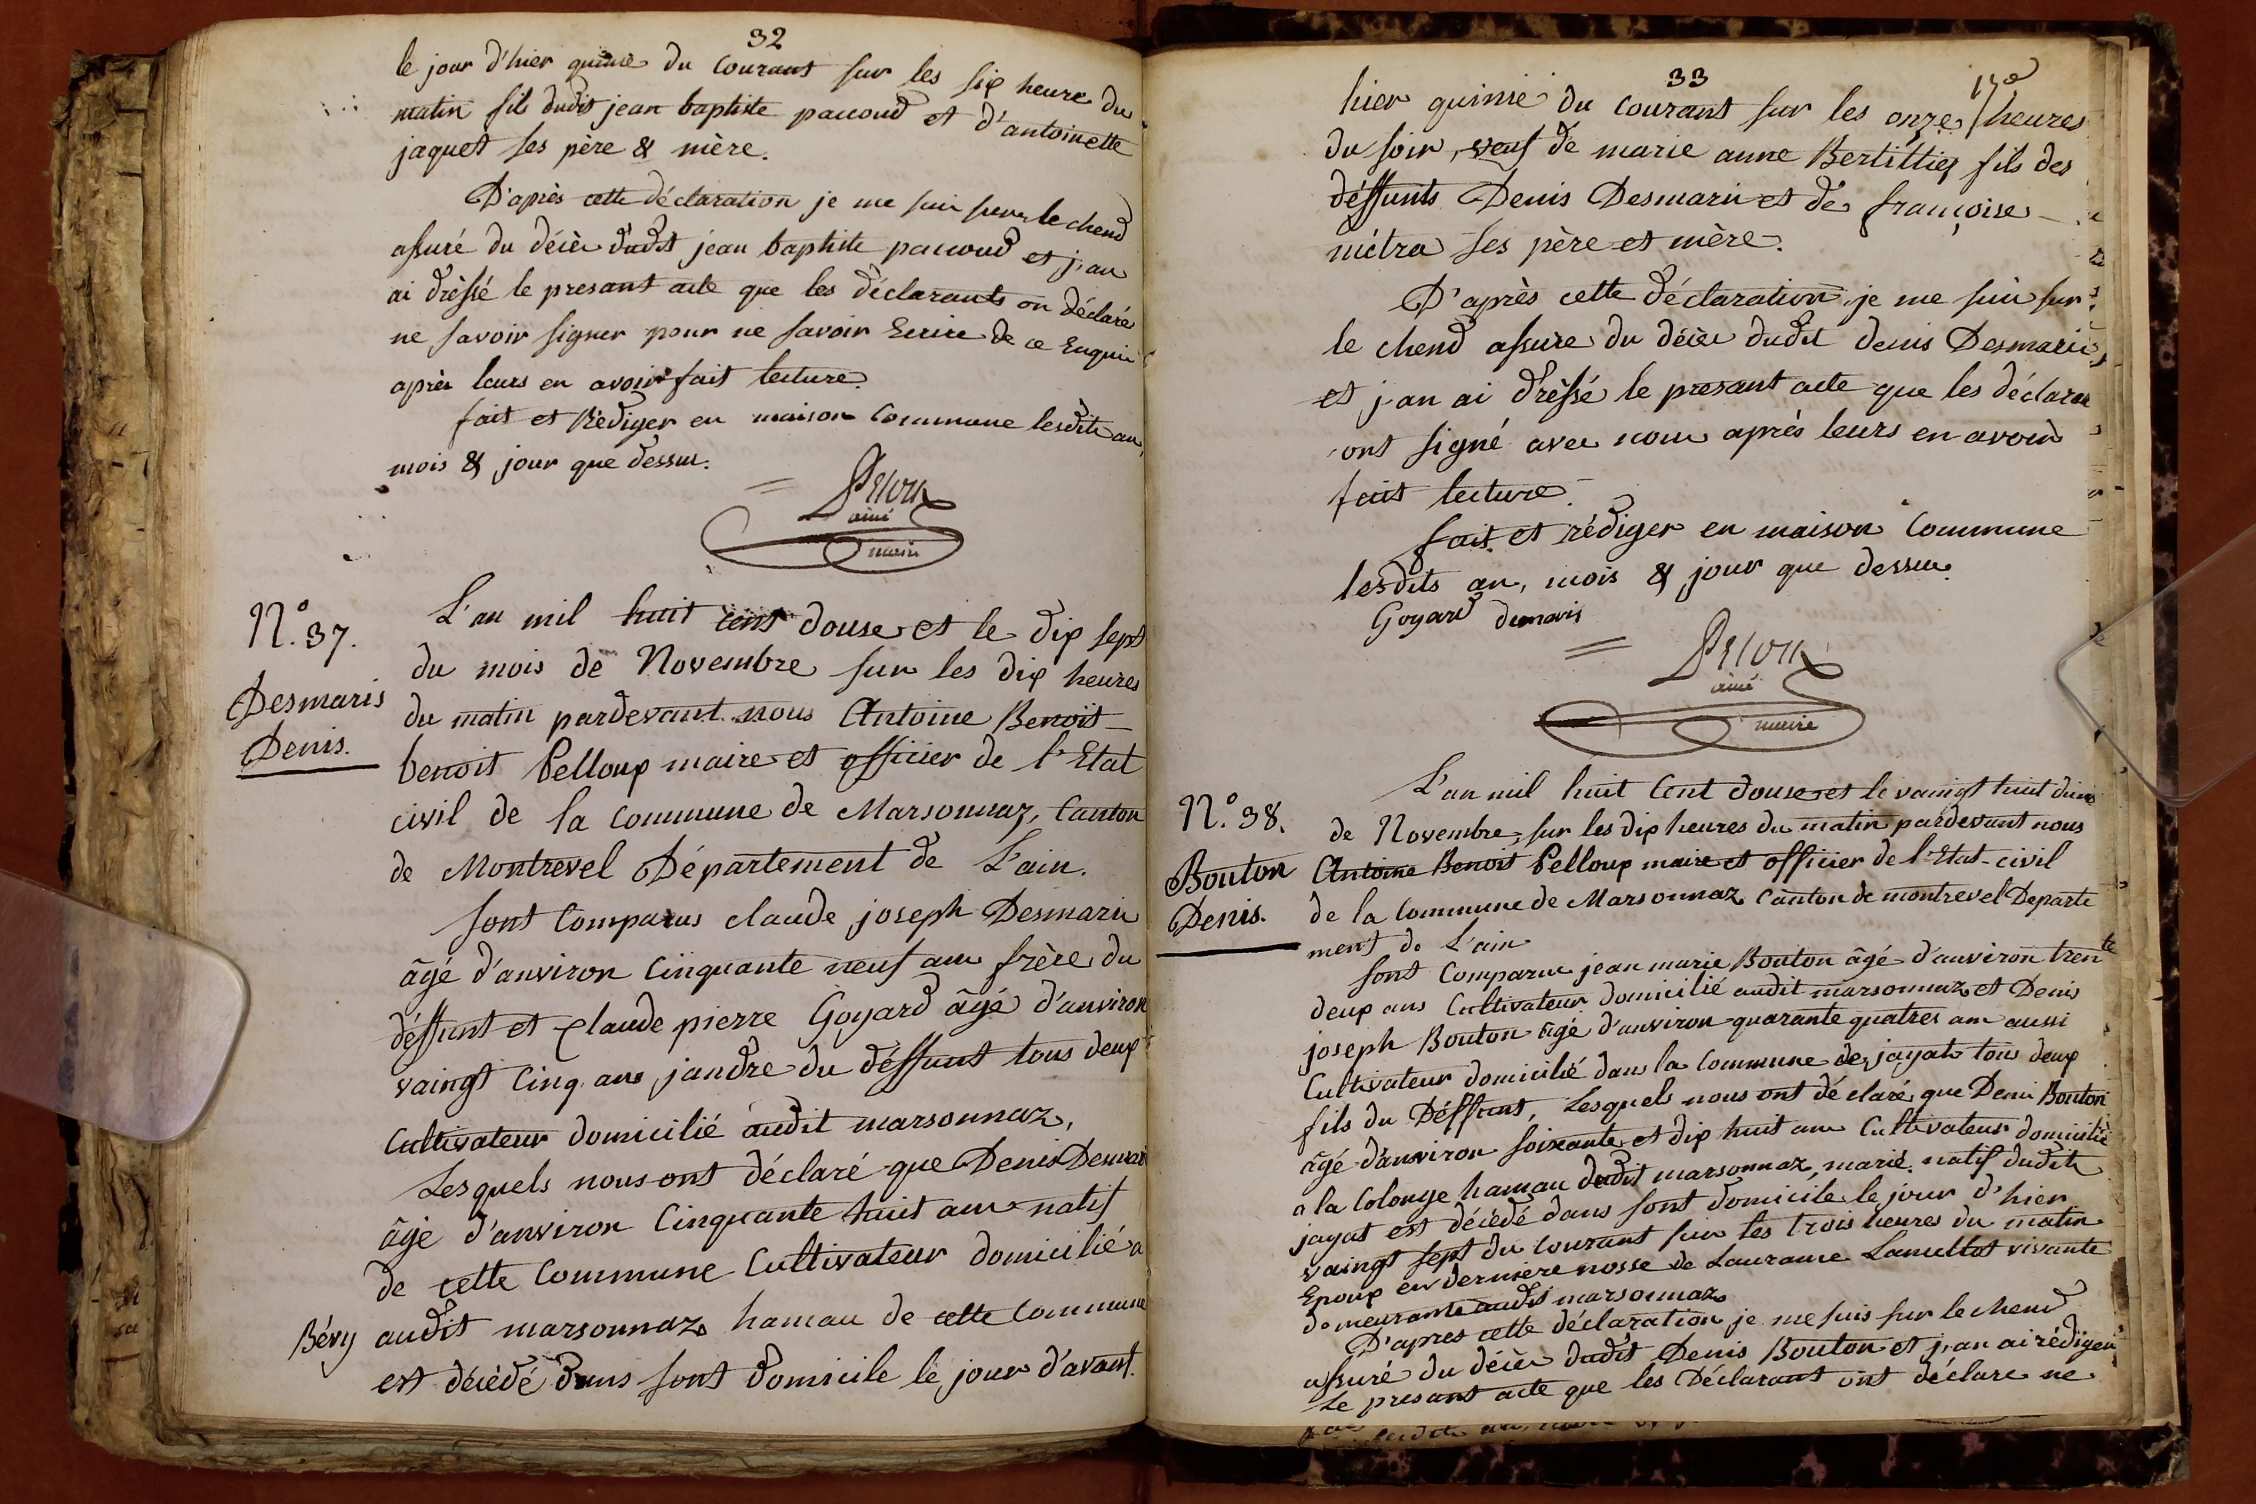 32
le jour d'hier quinse du Courant sur les six heure du
matin fils dudit jean baptiste paccoud et d'antoinette
jaquet ses père & mère.
D'après cette déclaration je me suis sur le chend
assuré du décès dudit jean baptiste paccoud et j'an
ai drèssé le presant acte que les déclarants on déclaré
ne savoir signer pour ne savoir Ecrire de ce Enquis
après leurs en avoir fait lecture.
fait et Rèdiger en maison Commune lesdits an,
mois & jour que dessus.
Pelou
ainé
maire
N.º 37.
Desmaris
Denis.
L'an mil huit cent douse et le dix sept
du mois de Novembre sur les dix heures
du matin pardevant nous Antoine Benoit
benoit Pelloup maire et officier de l'Etat
civil de la Commune de Marsonnaz, Canton
de Montrevel Département de L'ain.
sont Comparus claude joseph Desmaris
âgé d'anviron Cinquante neuf ans frère du
déffunt et claude pierre Goyard âgé d'anviron
vaingt Cinq ans jandre du déffunt tous deux
Cultivateur domicilié audit marsonnaz,
Lesquels nous ont déclaré que Denis Desmaris
âgé d'anviron Cinquante huit ans natif
de cette Commune Cultivateur domicilié a
Bévy audit marsonnaz hamau de cette Commune
est décédé dans sont domicile le jour d'avant.
33
hier quinse du Courant sur les onze heures
du soir, veuf de marie anne Bertillier fils des
déffunts Denis Desmaris et de françoise
mètra ses père et mère.
D'après cette déclaration je me suis sur
le chend assure du décès dudit denis Desmaris
et j'an ai drèssé le presant acte que les déclaran
ont signé avec nous après leurs en avoir
fait lecture.
fait et rédiger en maison Commune
lesdits an, mois & jour que dessus.
Goyard demaris
Pelou
ainé
maire
N.º 38.
Bouton
Denis.
L'an mil huit Cent douse et le vaingt huit du mois
de Novembre, sur les dix heures du matin pardevant nous
Antoine Benoit Pelloup maire et officier de l'Etat-civil
de la Commune de Marsonnaz Canton de montrevel Departe
ment de L'ain
sont Comparus jean marie Bouton âgé d'anviron trente
deux ans Cultivateur domicilié audit marsonnaz et Denis
joseph Bouton âgé d'anviron quarante quatres ans aussi
Cultivateur domicilié dans la Commune de jayat tous deux
fils du Déffunt, Lesquels nous ont déclaré que Denis Bouton
âgé d'anviron soixante et dix huit ans Cultivateur domicilié
a la Colonge hamau dudit marsonnaz, marié, natif dudit
jayat est décédé dans sont domicile le jour d'hier
vaingt sept du Courant sur les trois heures du matin
Epoux en dernière nosse de Laurance Lamellet vivante
demeurante audit marsonnaz
D'apres cette déclaration je me suis sur le chend
assuré du décès dudit Denis Bouton et j'an ai rédigen
Le presant acte que les Déclarant ont déclare ne